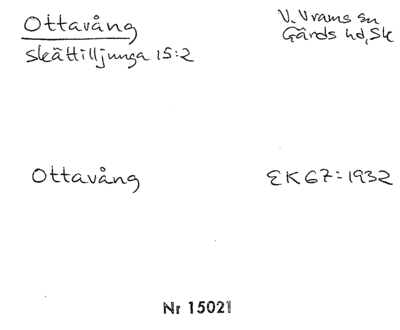 Ottavång
V. Vrams sn
Skättilljunga 15:2
Gärds hd, Sk
Ottavång
EK 67: 1932
Nr 15021